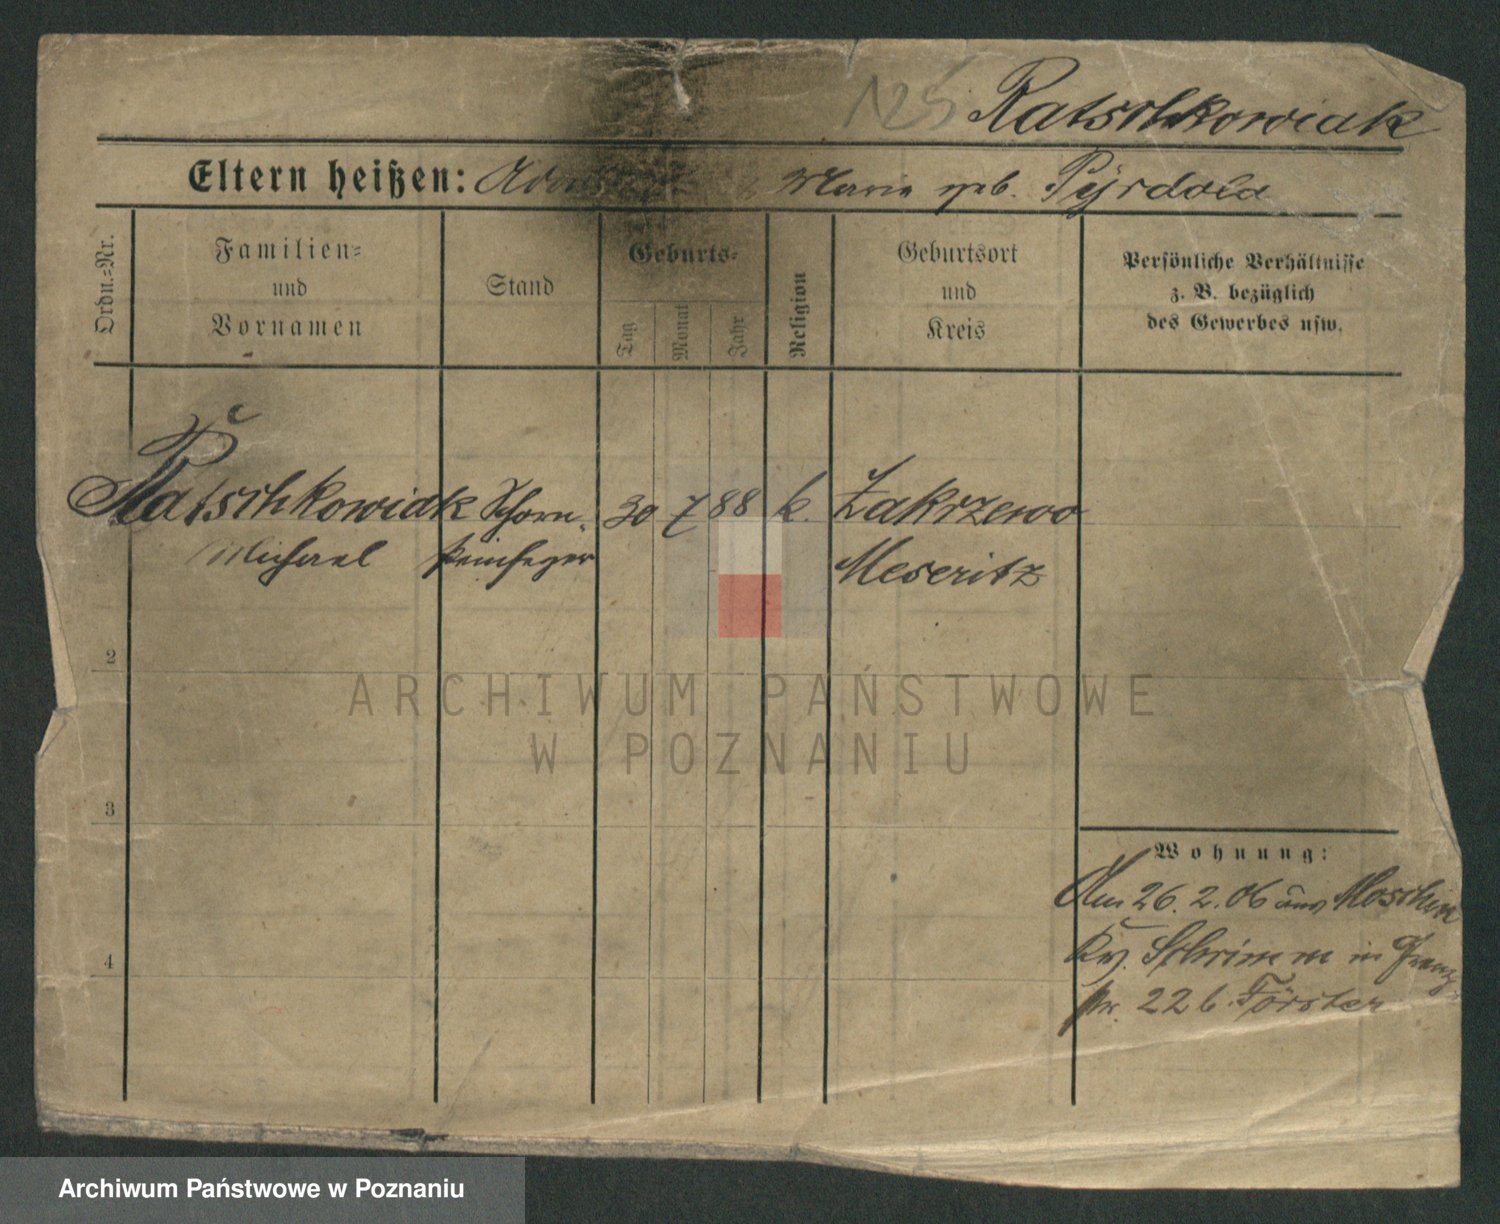 125 Ratschkowiak
Eltern heißen: Marie geb. Pyrdoła
Ordn.-Nr.
Familien-
und
Vornamen
Stand
Geburts-
Tag
Monat
Jahr
Religion
Geburtsort
und
Kreis
Persönliche Verhältnisse
z. B. bezüglich
des Gewerbes usw.
Ratschkowiak Schorn- 30 7 88 k. Zakrzewo
Michael steinfeger Meseritz
2
3
4
Wohnung:
Am 26.2.06 aus Moschin
Kr. Schrimm in
22 b. Förster
ARCHIWUM PAŃSTWOWE
W POZNANIU
Archiwum Państwowe w Poznaniu